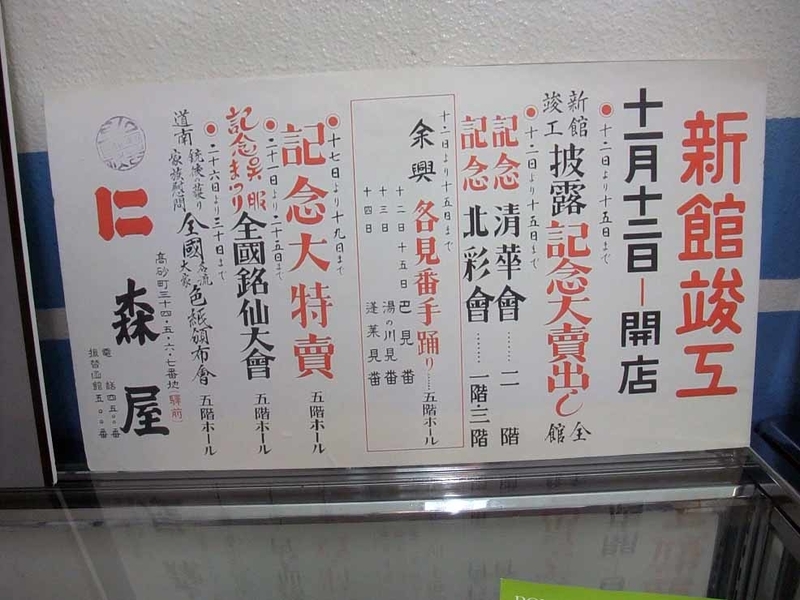 新館竣工
十一月十二日―開店
十二日より十五日まで
新館竣工披露記念大賣出し 全館
十二日より十五日まで
記念 清華會……二階
記念 北彩會……一階三階
十二日より十五日まで
余興 各見番手踊り……五階ホール
十二日十五日 巴見番
十三日 湯の川見番
十四日 蓬萊見番
十七日より十九日まで
記念大特賣 五階ホール
二十二日より二十五日まで
記念呉服まつり 全國銘仙大會 五階ホール
二十六日より三十日まで
道南 銃後の護り 家族慰問 全國名流大家色紙頒布會 五階ホール
高砂町三十四・五・六・七番地(驛前)
仁 森屋
電話四五〇〇番
振替函館五〇〇番